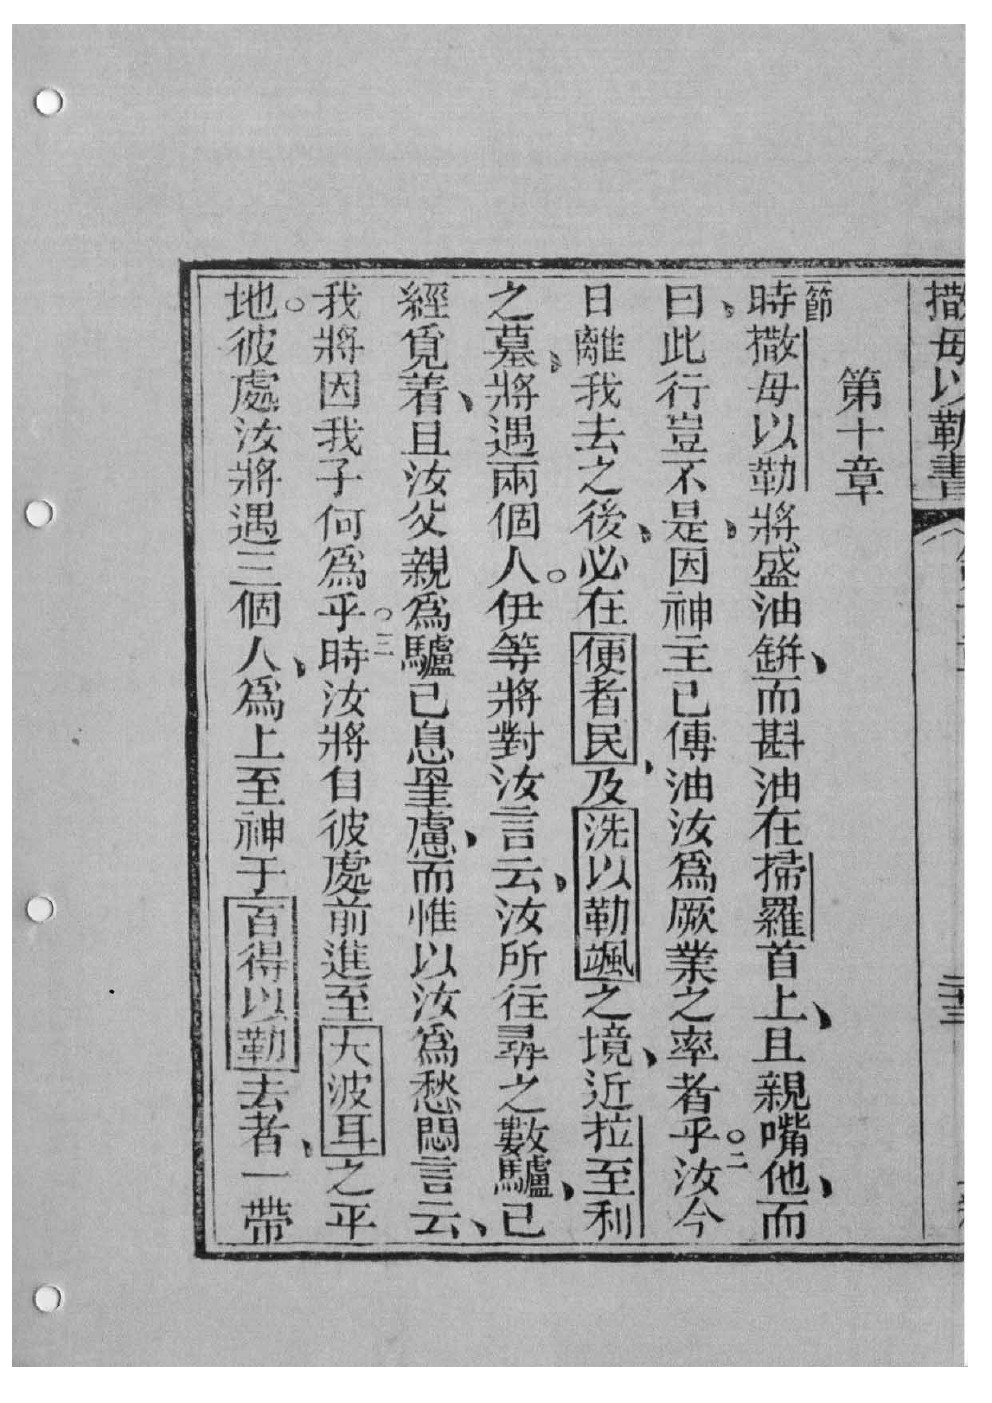 撒母以勒書
第十章
節
時撒母以勒將盛油缾、而斟油在掃羅首上、且親嘴他、而
曰、此行豈不是、因神主已傅油汝爲厥業之率者乎。二汝今
日離我去之後、必在便者民、及洗以勒颯之境、近拉至利
之墓、將遇兩個人。伊等將對汝言云、汝所往尋之數驢、已
經覓着、且汝父親爲驢已息罣慮、而惟以汝爲愁悶言云、
我將因我子何爲乎。三時汝將自彼處前進至大波耳之平
地。彼處汝將遇三個人、爲上至神于百得以勒去者、一帶